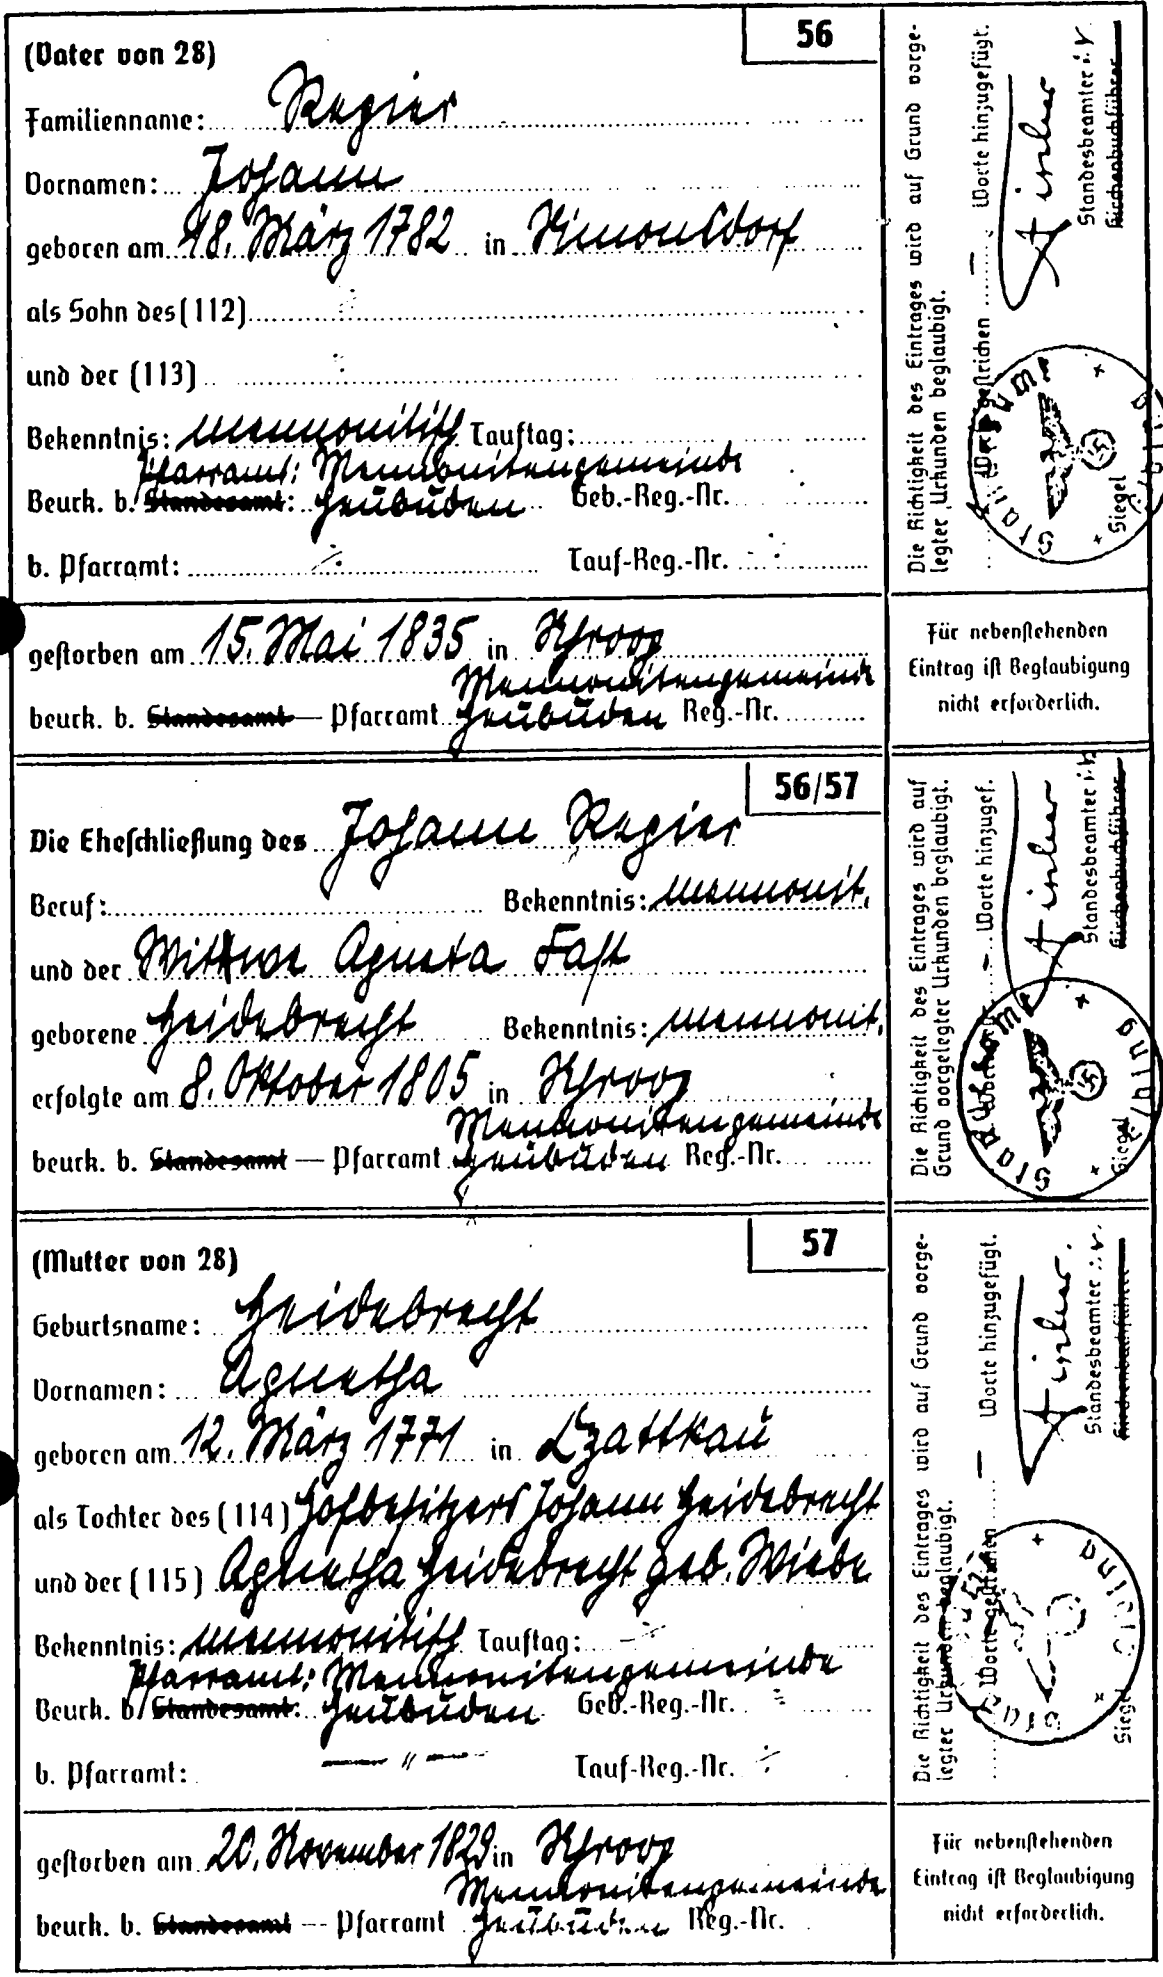 56
(Vater von 28)
Familienname: Regier
Vornamen: Johann
geboren am 18. März 1782 in Simonsdorf
als Sohn des (112)
und der (113)
Bekenntnis: mennonitisch Tauftag:
Pfarramt: Mennonitengemeinde
Beurk. b. Standesamt: Heubuden Geb.-Reg.-Nr.
b. Pfarramt: Tauf-Reg.-Nr.
gestorben am 15. Mai 1835 in Schroop
Mennonitengemeinde
beurk. b. Standesamt — Pfarramt Heubuden Reg.-Nr.
Die Richtigkeit des Eintrages wird auf Grund vorge-
legter Urkunden beglaubigt.
Worte gestrichen — Worte hinzugefügt.
Fischer
Standesbeamter i. V.
Kirchenbuchführer
Standesamt Elbing
Siegel
Für nebenstehenden
Eintrag ist Beglaubigung
nicht erforderlich.
56/57
Die Eheschließung des Johann Regier
Beruf: Bekenntnis: mennonit.
und der Wittwe Agneta Fast
geborene Heidebrecht Bekenntnis: mennonit.
erfolgte am 8. Oktober 1805 in Schroop
Mennonitengemeinde
beurk. b. Standesamt — Pfarramt Heubuden Reg.-Nr.
Die Richtigkeit des Eintrages wird auf
Grund vorgelegter Urkunden beglaubigt.
Worte hinzugef.
Fischer
Standesbeamter i. V.
Kirchenbuchführer
Standesamt Elbing
Siegel
57
(Mutter von 28)
Geburtsname: Heidebrecht
Vornamen: Agnetha
geboren am 12. März 1771 in Czattkau
als Tochter des (114) Hofbesitzers Johann Heidebrecht
und der (115) Agnetha Heidebrecht geb. Wiebe
Bekenntnis: mennonitisch Tauftag:
Pfarramt: Mennonitengemeinde
Beurk. b. Standesamt: Heubuden Geb.-Reg.-Nr.
b. Pfarramt: — " — Tauf-Reg.-Nr.
gestorben am 20. November 1829 in Schroop
Mennonitengemeinde
beurk. b. Standesamt — Pfarramt Heubuden Reg.-Nr.
Die Richtigkeit des Eintrages wird auf Grund vorge-
legter Urkunden beglaubigt.
Worte gestrichen — Worte hinzugefügt.
Fischer.
Standesbeamter i. V.
Kirchenbuchführer
Siegel
Für nebenstehenden
Eintrag ist Beglaubigung
nicht erforderlich.